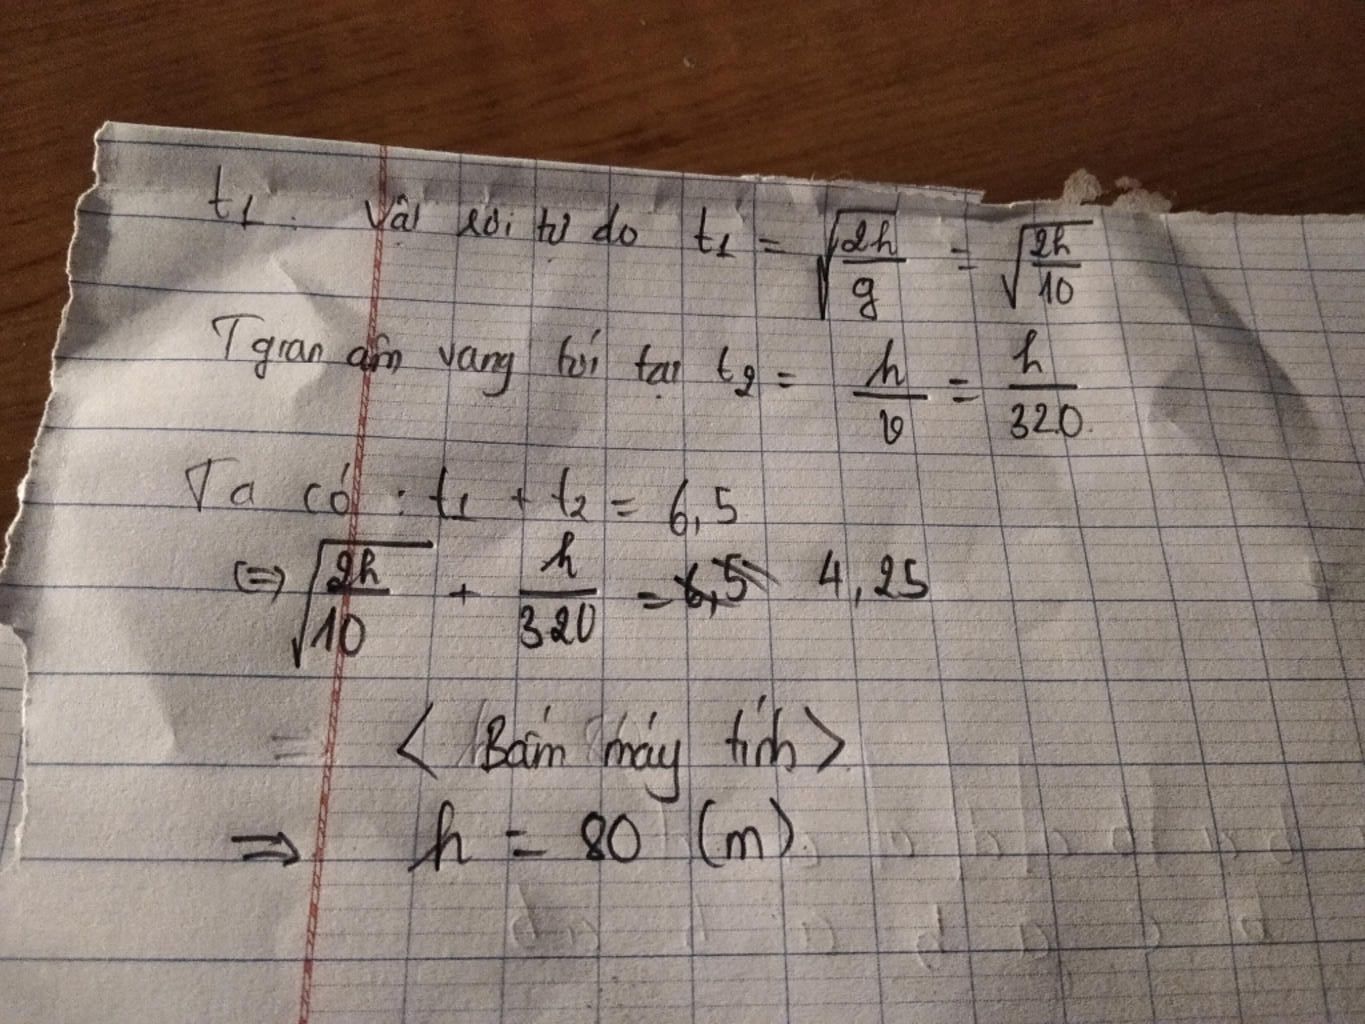 t1 : Vật rơi tự do t1 = √(2h/g) = √(2h/10)
Tgian âm vang tới tai t2 = h/v = h/320
Ta có : t1 + t2 = 6,5
⇔ √(2h/10) + h/320 = 6,5 4,25
= < Bấm máy tính >
⇒ h = 80 (m)